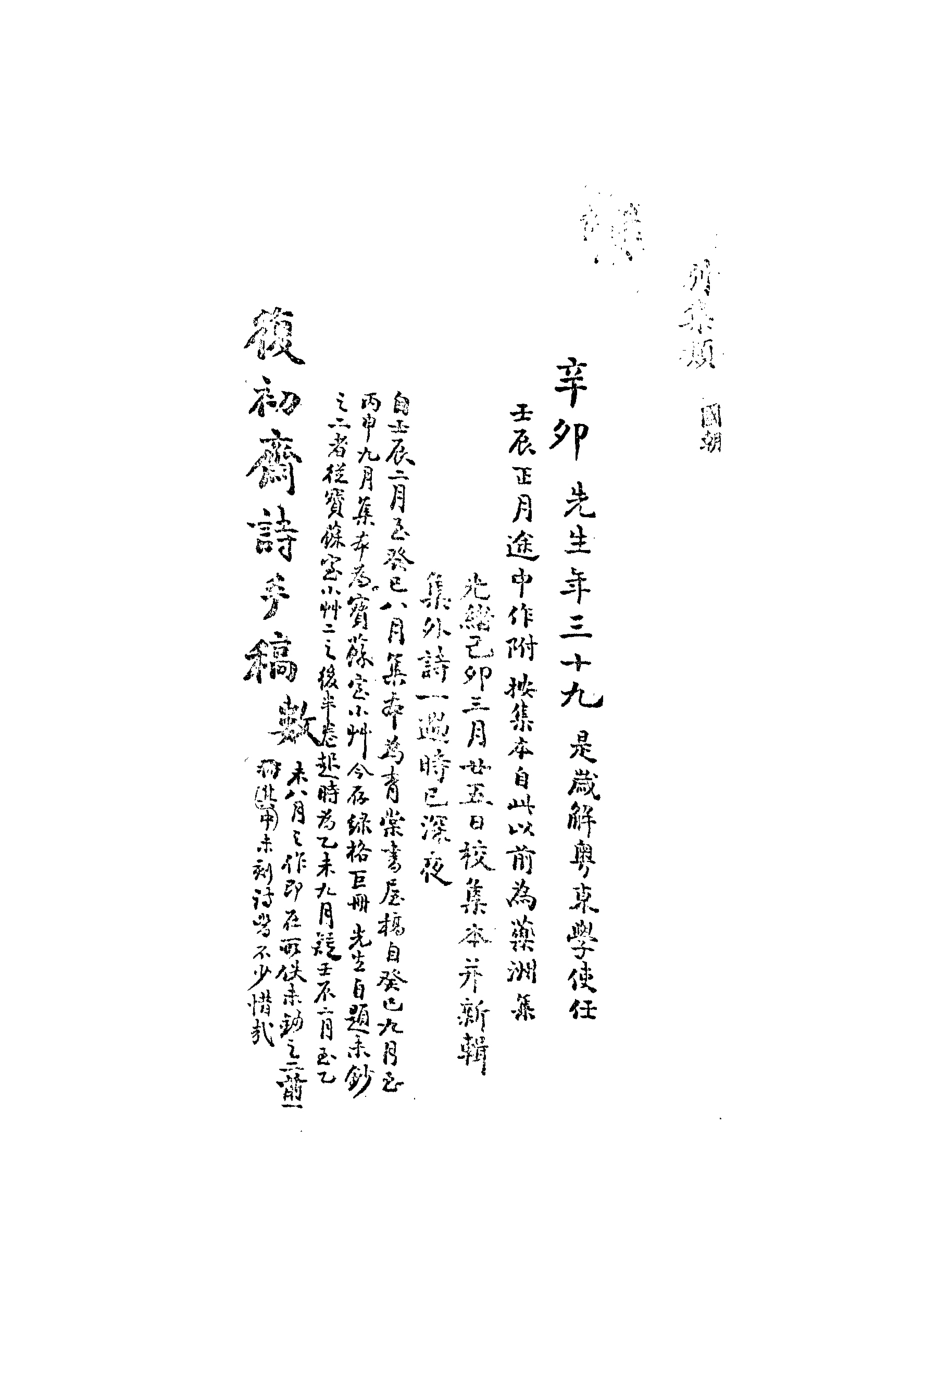 別集類 國朝
辛卯 先生年三十九 是歲解粵東學使任
壬辰正月途中作附 按集本自此以前為藥洲集
光緒己卯三月廿五日校集本并新輯
集外詩一過時已深夜
自壬辰二月至癸巳八月集本為青棠書屋稿自癸巳九月至
丙申九月集本為寶蘇室小艸今存綠格巨冊先生自題未鈔
之二者從寶蘇室小艸二之後半卷起時為乙未九月疑壬辰二月至乙
未八月之作即在所佚未鈔之一前
數
復初齋詩手稿
未刻詩當不少惜哉